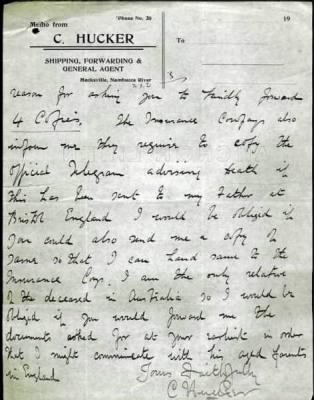 'Phone No. 20
19
Memo from
C. HUCKER
SHIPPING, FORWARDING &
GENERAL AGENT
Macksville, Nambucca River
To
3
reason for asking you to kindly forward
4 Copies. The Insurance Compays also
inform me they require to copy the
Official Telegram advising death if
this has been sent to my Father at
Bristol England I would be obliged if
you could also send me a copy of
same so that I can hand same to the
Insurance Coys. I am the only relative
of the deceased in Australia so I would be
obliged if you would forward me the
documents asked for at your earliest in order
that I might communicate with his aged parents
in England
Yours Faithfully
C Hucker